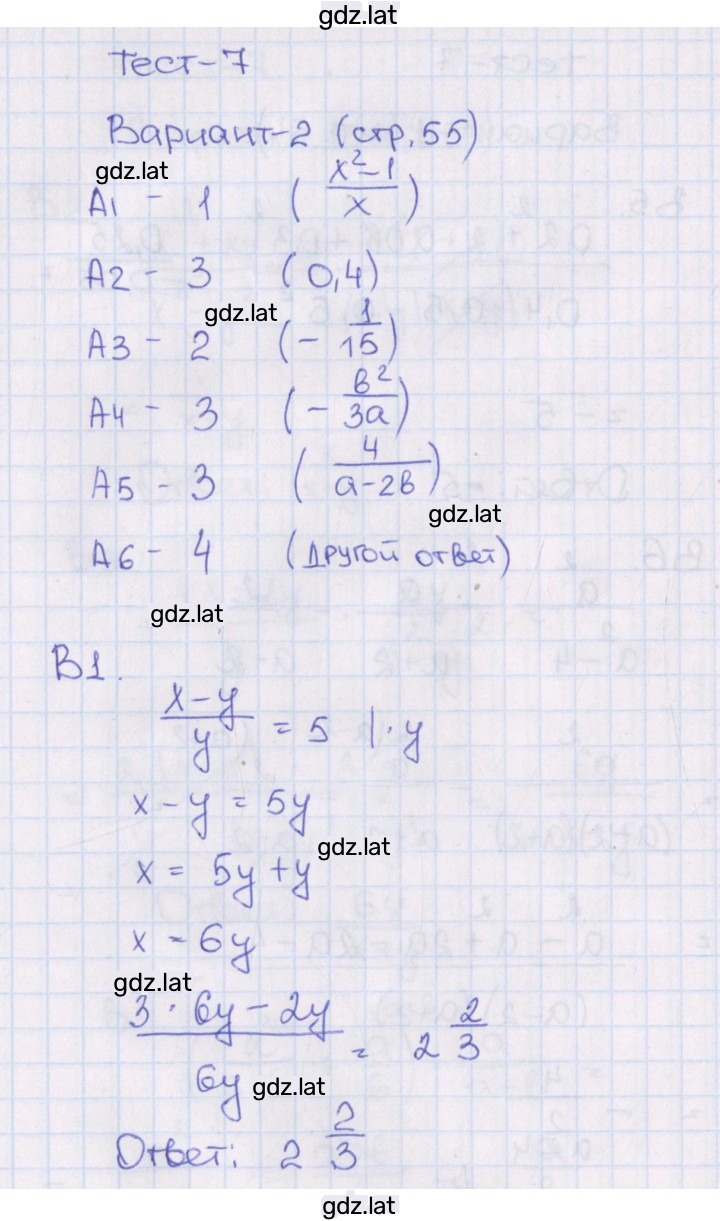 gdz.lat
Тест-7
Вариант-2 (стр. 55)
gdz.lat
А1 - 1 (x²-1/x)
А2 - 3 (0,4)
gdz.lat
А3 - 2 (- 1/15)
А4 - 3 (- в²/3а)
А5 - 3 (4/а-2в)
gdz.lat
А6 - 4 (другой ответ)
gdz.lat
В1.
x-y/y = 5 |·y
x - y = 5y
gdz.lat
x = 5y + y
x = 6y
gdz.lat
3 · 6y - 2y/6y = 2 2/3
gdz.lat
Ответ: 2 2/3
gdz.lat